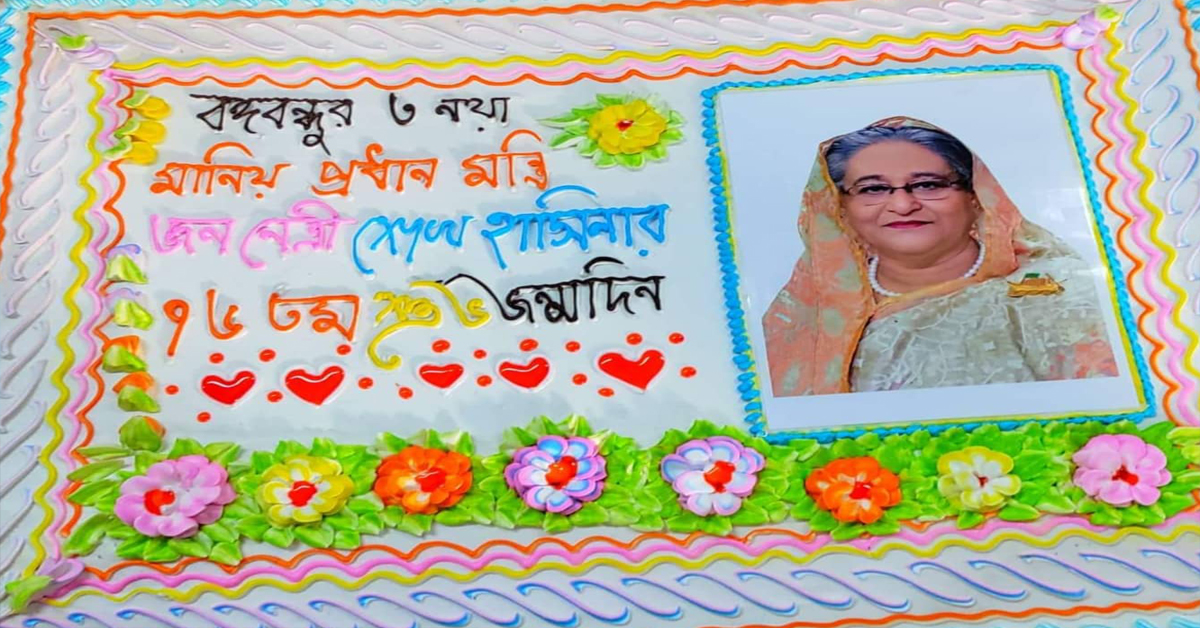 বঙ্গবন্ধুর ত নয়া
মানিয় প্রধান মন্ত্রি
জন নেত্রী শেখ হাসিনার
৭৬ তম শুভ জন্মদিন